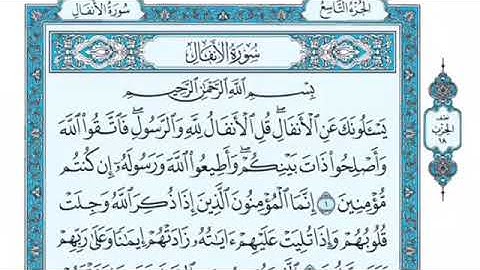 الجزء التاسع
سورة الأنفال
سُورَةُ الأَنْفَالِ
بِسْمِ اللَّهِ الرَّحْمَٰنِ الرَّحِيمِ
يَسْـَٔلُونَكَ عَنِ ٱلْأَنفَالِۖ قُلِ ٱلْأَنفَالُ لِلَّهِ وَٱلرَّسُولِۖ فَٱتَّقُوا۟ ٱللَّهَ
وَأَصْلِحُوا۟ ذَاتَ بَيْنِكُمْۖ وَأَطِيعُوا۟ ٱللَّهَ وَرَسُولَهُۥٓ إِن كُنتُم
مُّؤْمِنِينَ ١ إِنَّمَا ٱلْمُؤْمِنُونَ ٱلَّذِينَ إِذَا ذُكِرَ ٱللَّهُ وَجِلَتْ
قُلُوبُهُمْ وَإِذَا تُلِيَتْ عَلَيْهِمْ ءَايَٰتُهُۥ زَادَتْهُمْ إِيمَٰنًا وَعَلَىٰ رَبِّهِمْ
نصف
الحزب
١٨